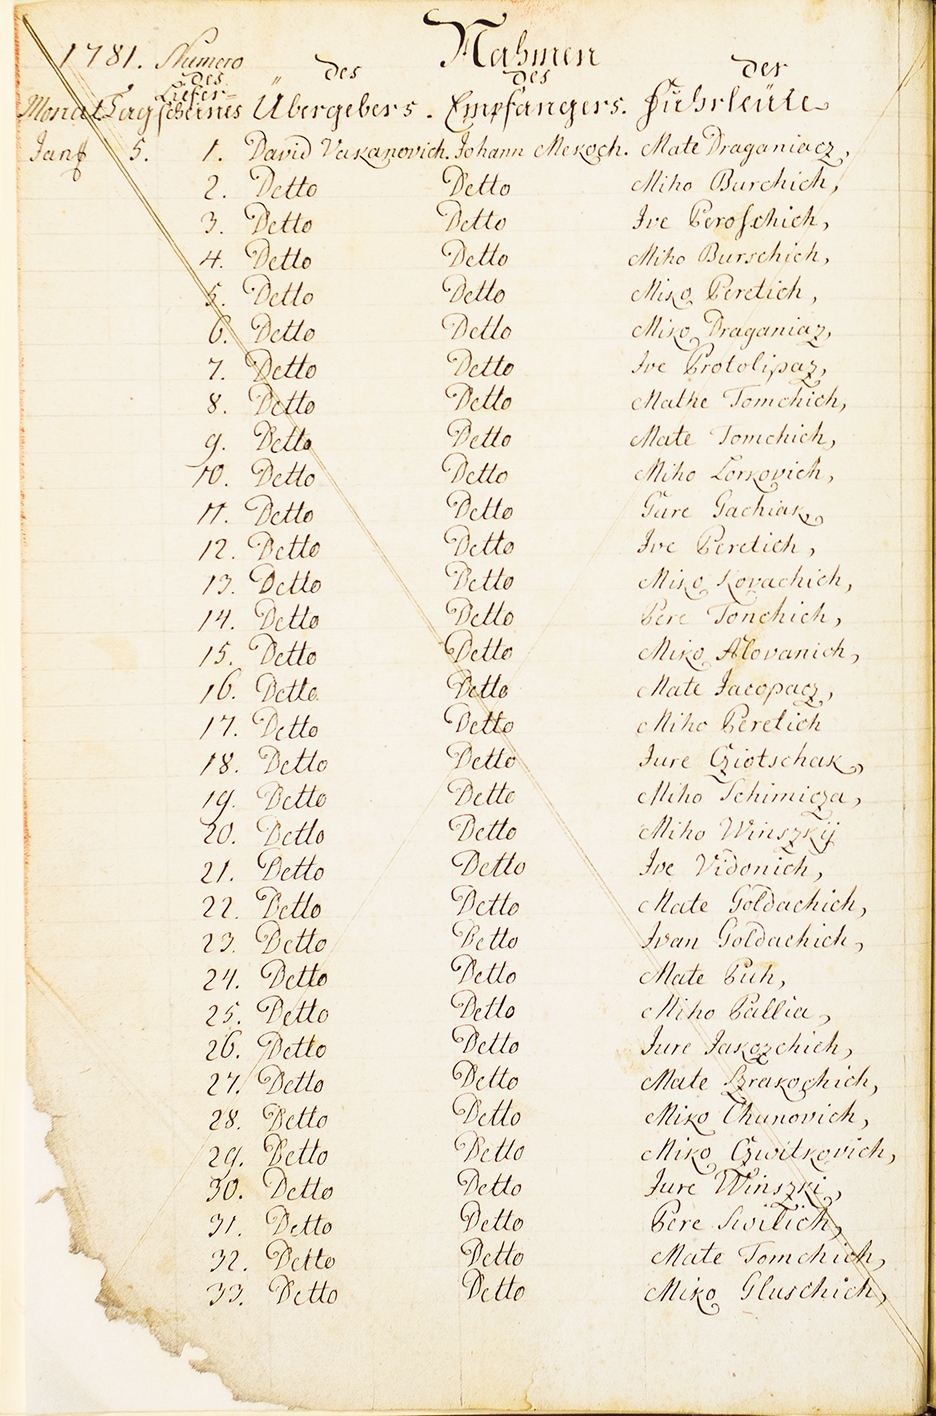 Nahmen
1781. Numero des des der
des
Liefer=
Monat Tag scheines Übergebers. Empfängers. Fuhrleüte
5. 1. David Vukanovich. Johann Mekoch. Mate Draganiacz,
2. Detto Detto Miho Burchich,
3. Detto Detto Ive Peroschich,
4. Detto Detto Miho Burschich,
5. Detto Detto Miko Peretich,
6. Detto Detto Miko Draganiaz,
7. Detto Detto Ive Protolipaz,
8. Detto Detto Mathe Tomchich,
9. Detto Detto Mate Tomchich,
10. Detto Detto Miho Lorkovich,
11. Detto Detto Gure Gachiak,
12. Detto Detto Ive Peretich,
13. Detto Detto Miko Kovachich,
14. Detto Detto Pere Tonchich,
15. Detto Detto Miko Alovanich,
16. Detto Detto Mate Jacopacz,
17. Detto Detto Miho Peretich
18. Detto Detto Jure Cziotschak,
19. Detto Detto Miho Schimicza,
20. Detto Detto Miho Winszkij
21. Detto Detto Ive Vidonich,
22. Detto Detto Mate Goldachich,
23. Detto Detto Ivan Goldachich,
24. Detto Detto Mate Puh,
25. Detto Detto Miho Pallia,
26. Detto Detto Jure Jakozchich,
27. Detto Detto Mate Brakochich,
28. Detto Detto Miko Chunovich,
29. Detto Detto Miko Czwitkovich,
30. Detto Detto Jure Winszki,
31. Detto Detto Pere Swilich,
32. Detto Detto Mate Tomchich,
33. Detto Detto Miko Gluschich,